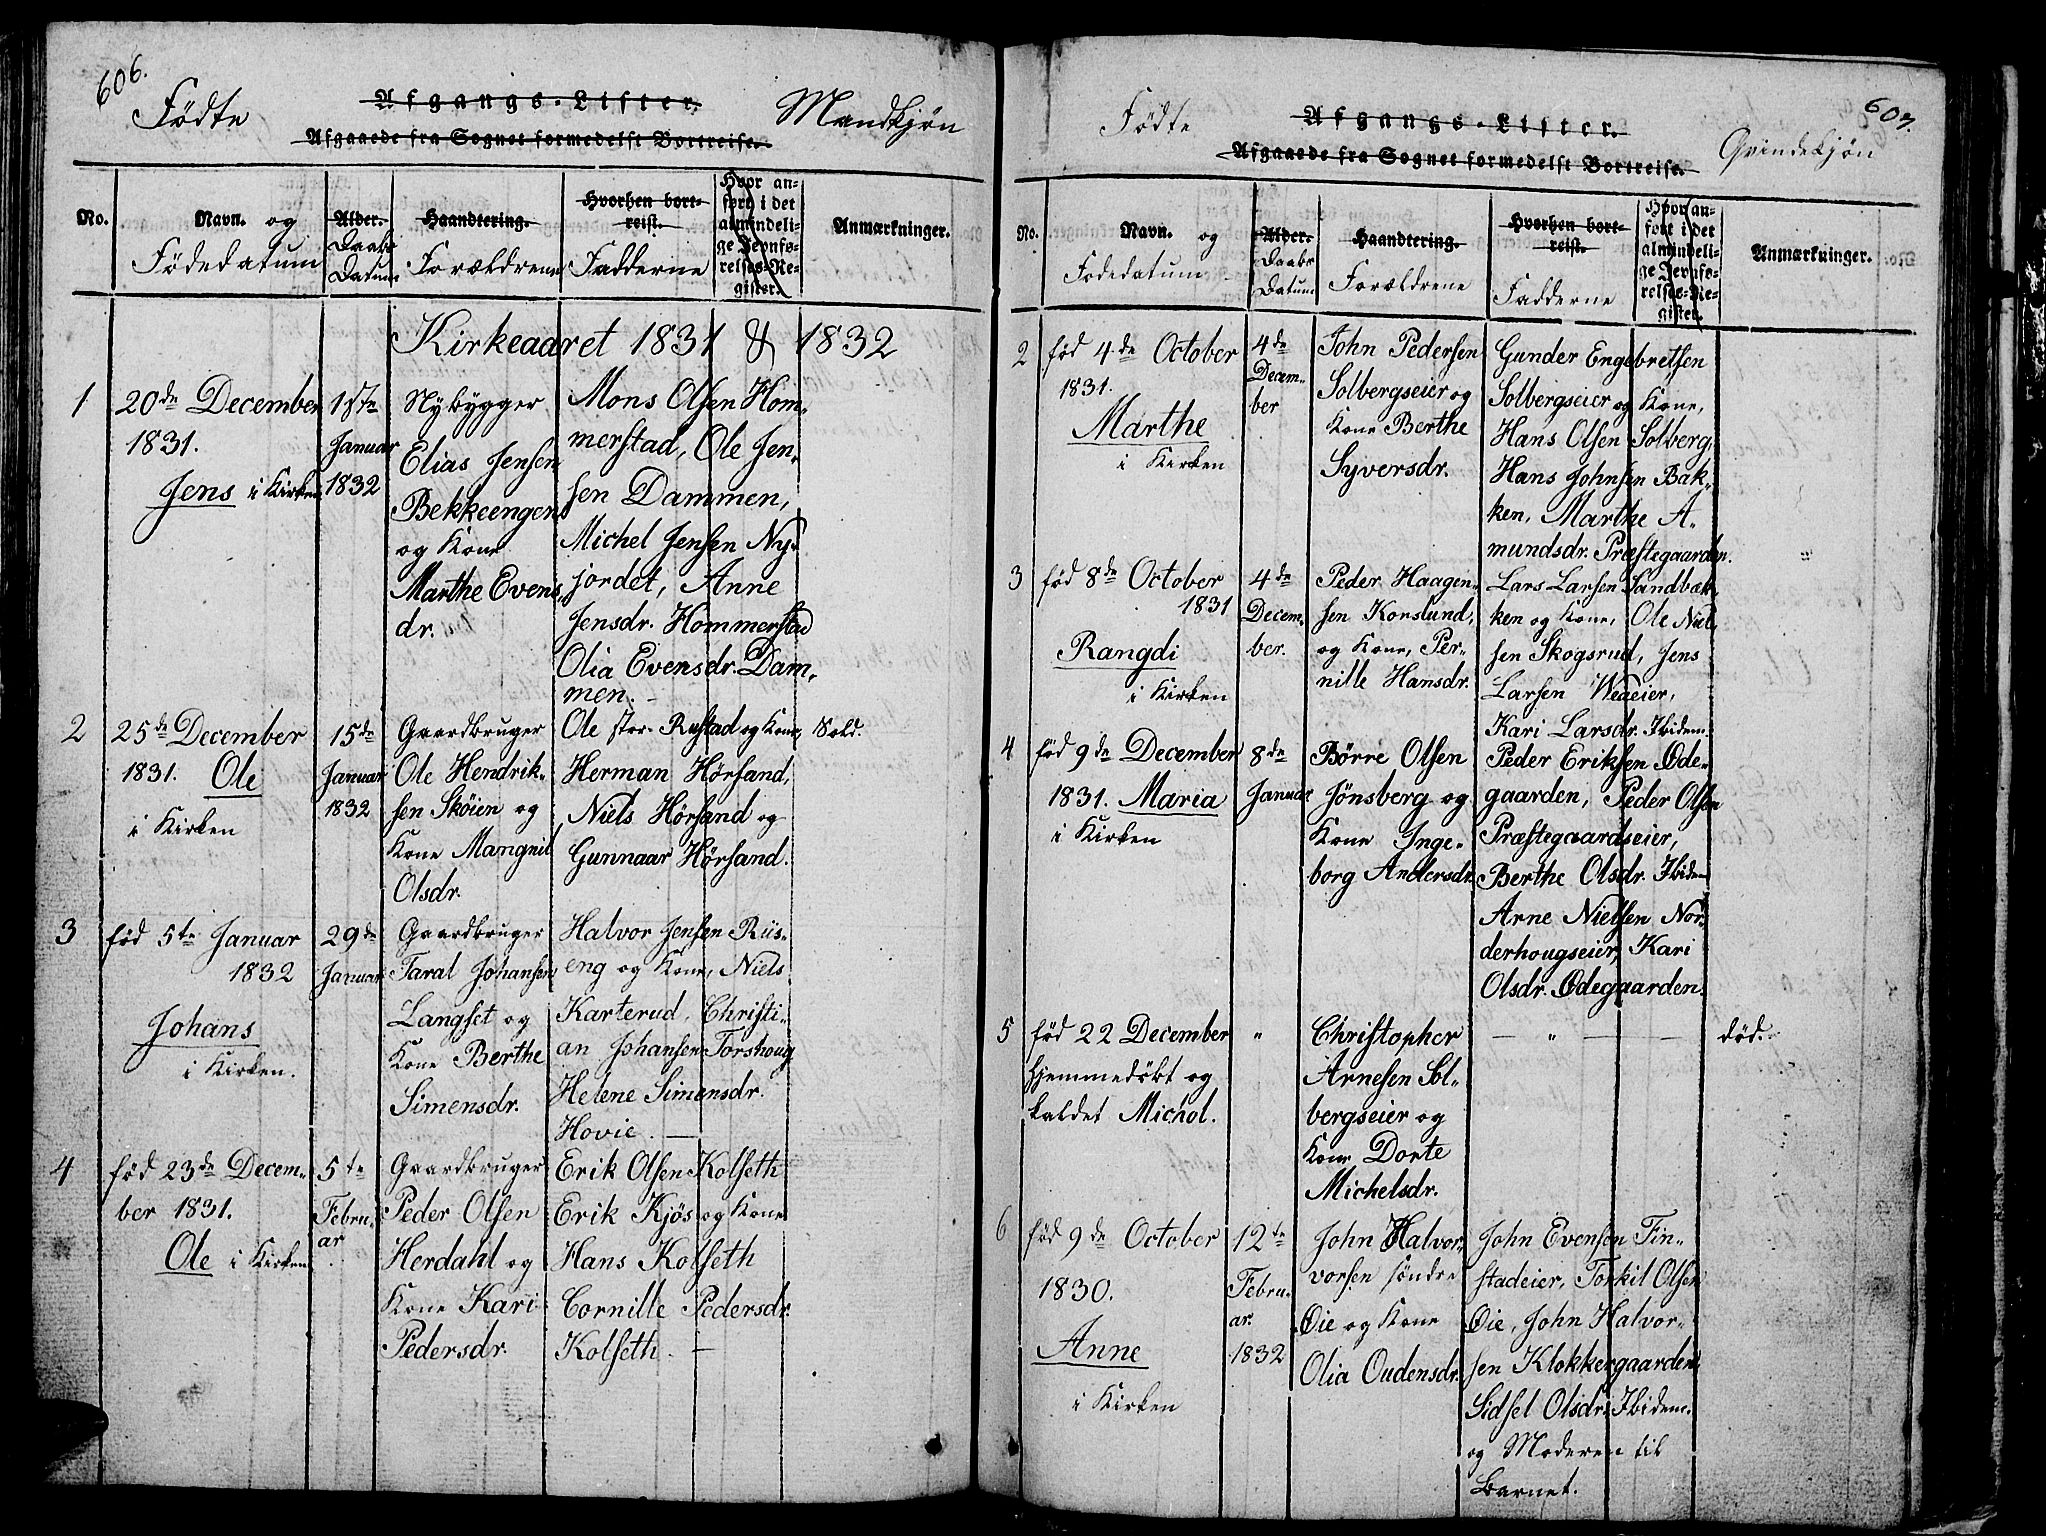 606.
Fødte
Afgangs-Lister.
Mandkjøn
Afgaaede fra Sognet formedelst Bortreise.
No.
Navn. og
Fødedatum
Alder.
Daabs
Datum
Haandtering.
Forældrene
Hvorhen bort-
reist.
Fadderne
Hvor an-
ført i det
almindeli-
ge Jevnfø-
relses-Re-
gister.
Anmærkninger.
Kirkeaaret 1831 & 1832
1
20de December
1831.
Jens i Kirken
1ste
Januar
1832
Nybygger
Elias Jensen
Bekkeengen
og Kone
Marthe Evens-
dr.
Mons Olsen Hom-
merstad, Ole Jen-
sen Dammen,
Michel Jensen Ny-
jordet, Anne
Jensdr. Hommerstad
Olia Evensdr. Dam-
men. -
2
25de December
1831. Ole
i Kirken
15de
Januar
1832
Gaardbruger
Ole Hendrik-
sen Sköien og
Kone Mangnil
Olsdr.
Ole stor-Rustad og Kone,
Herman Hörsand,
Niels Hörsand og
Gunnaar Hörsand.
Sold.
3
fød 5te Januar
1832
Johans
i Kirken.
29de
Januar
Gaardbruger
Taral Johansen
Langset og
Kone Berthe
Simensdr.
Halvor Jensen Riis-
eng og Kone, Niels
Karterud, Christi-
an Johansen Torshoug
Helene Simensdr.
Hovie. -
4
fød 23de Decem-
ber 1831.
Ole i Kirken
5te
Febru-
ar
Gaardbruger
Peder Olsen
Herdahl og
Kone Kari
Pedersdr.
Erik Olsen Kolseth
Erik Kjös og Kone
Hans Kolseth
Cornille Pedersdr.
Kolseth. -
607.
Fødte
Afgangs-Lister.
Qvindekjøn
Afgaaede fra Sognet formedelst Bortreise.
No.
Navn. og
Fødedatum
Alder.
Daabs
Datum
Haandtering.
Forældrene
Hvorhen bort-
reist.
Fadderne
Hvor an-
ført i det
almindeli-
ge Jevnfø-
relses-Re-
gister.
Anmærkninger.
2
fød 4de October
1831.
Marthe
i Kirken
4de
Decem-
ber
John Pedersen
Solbergseier og
Kone Berthe
Syversdr.
Gunder Engebretsen
Solbergseier og Kone,
Hans Olsen Solberg,
Hans Johnsen Bak-
ken, Marthe A-
mundsdr. Præstegaarden.
3
fød 8de October
1831
Rangdi
i Kirken
4de
Decem-
ber.
Peder Haagen-
sen Korslund,
og Kone, Per-
nille Hansdr.
Lars Larsen Sandbæk-
ken og Kone, Ole Niel-
sen Skogsrud, Jens
Larsen Wedeier,
Kari Larsdr. Ibidem.
4
fød 9de December
1831. Maria
i Kirken
8de
Januar
Börre Olsen
Jönsberg og
Kone Inge-
borg Andersdr.
Peder Eriksen Öde-
gaarden, Peder Olsen
Præstegaardseier,
Berthe Olsdr. Ibidem
Arne Nielsen Nor-
derhougseier, Kari
Olsdr. Ödegaarden.
5
fød 22 December
hjemmedøbt og
kaldet Michol.
"
Christopher
Arnesen Sol-
bergseier og
Kone Dorte
Michelsdr.
— " — —
død.
6
fød 9de October
1830.
Anne
i Kirken
12te
Febru-
ar.
1832
John Halvor-
vorsen søndre
Öie og Kone
Olia Oudensdr.
John Evensen Fin-
stadeier, Torkil Olsen
Öie, John Halvor-
sen Klokkergaarden,
Sidsel Olsdr. Ibidem.
og Moderen til
Barnet.